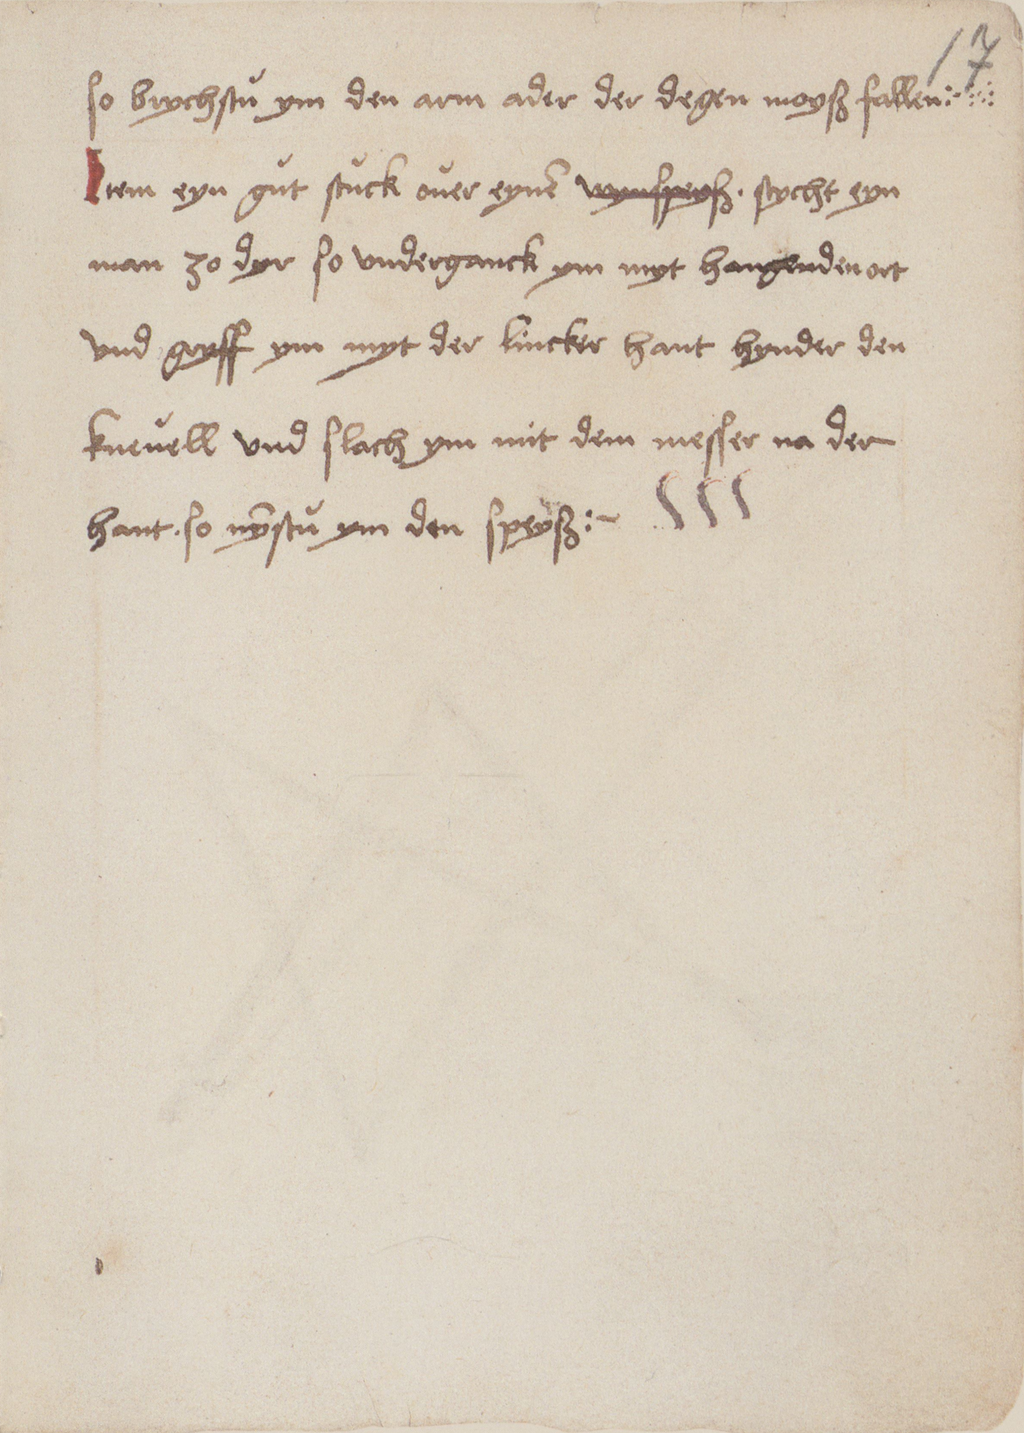 17
so brychstu ym den arm ader der degen moyß fallen :~
Item eyn gůt stůck ouer eynē wynspeyß. stycht eyn
man zo dyr so vnderganck ym myt hangenden ort
vnd gryff ym myt der lincker hant hynder den
kneuell vnd slach ym mit dem messer na der
hant. so nȳstu ym den speyß :~